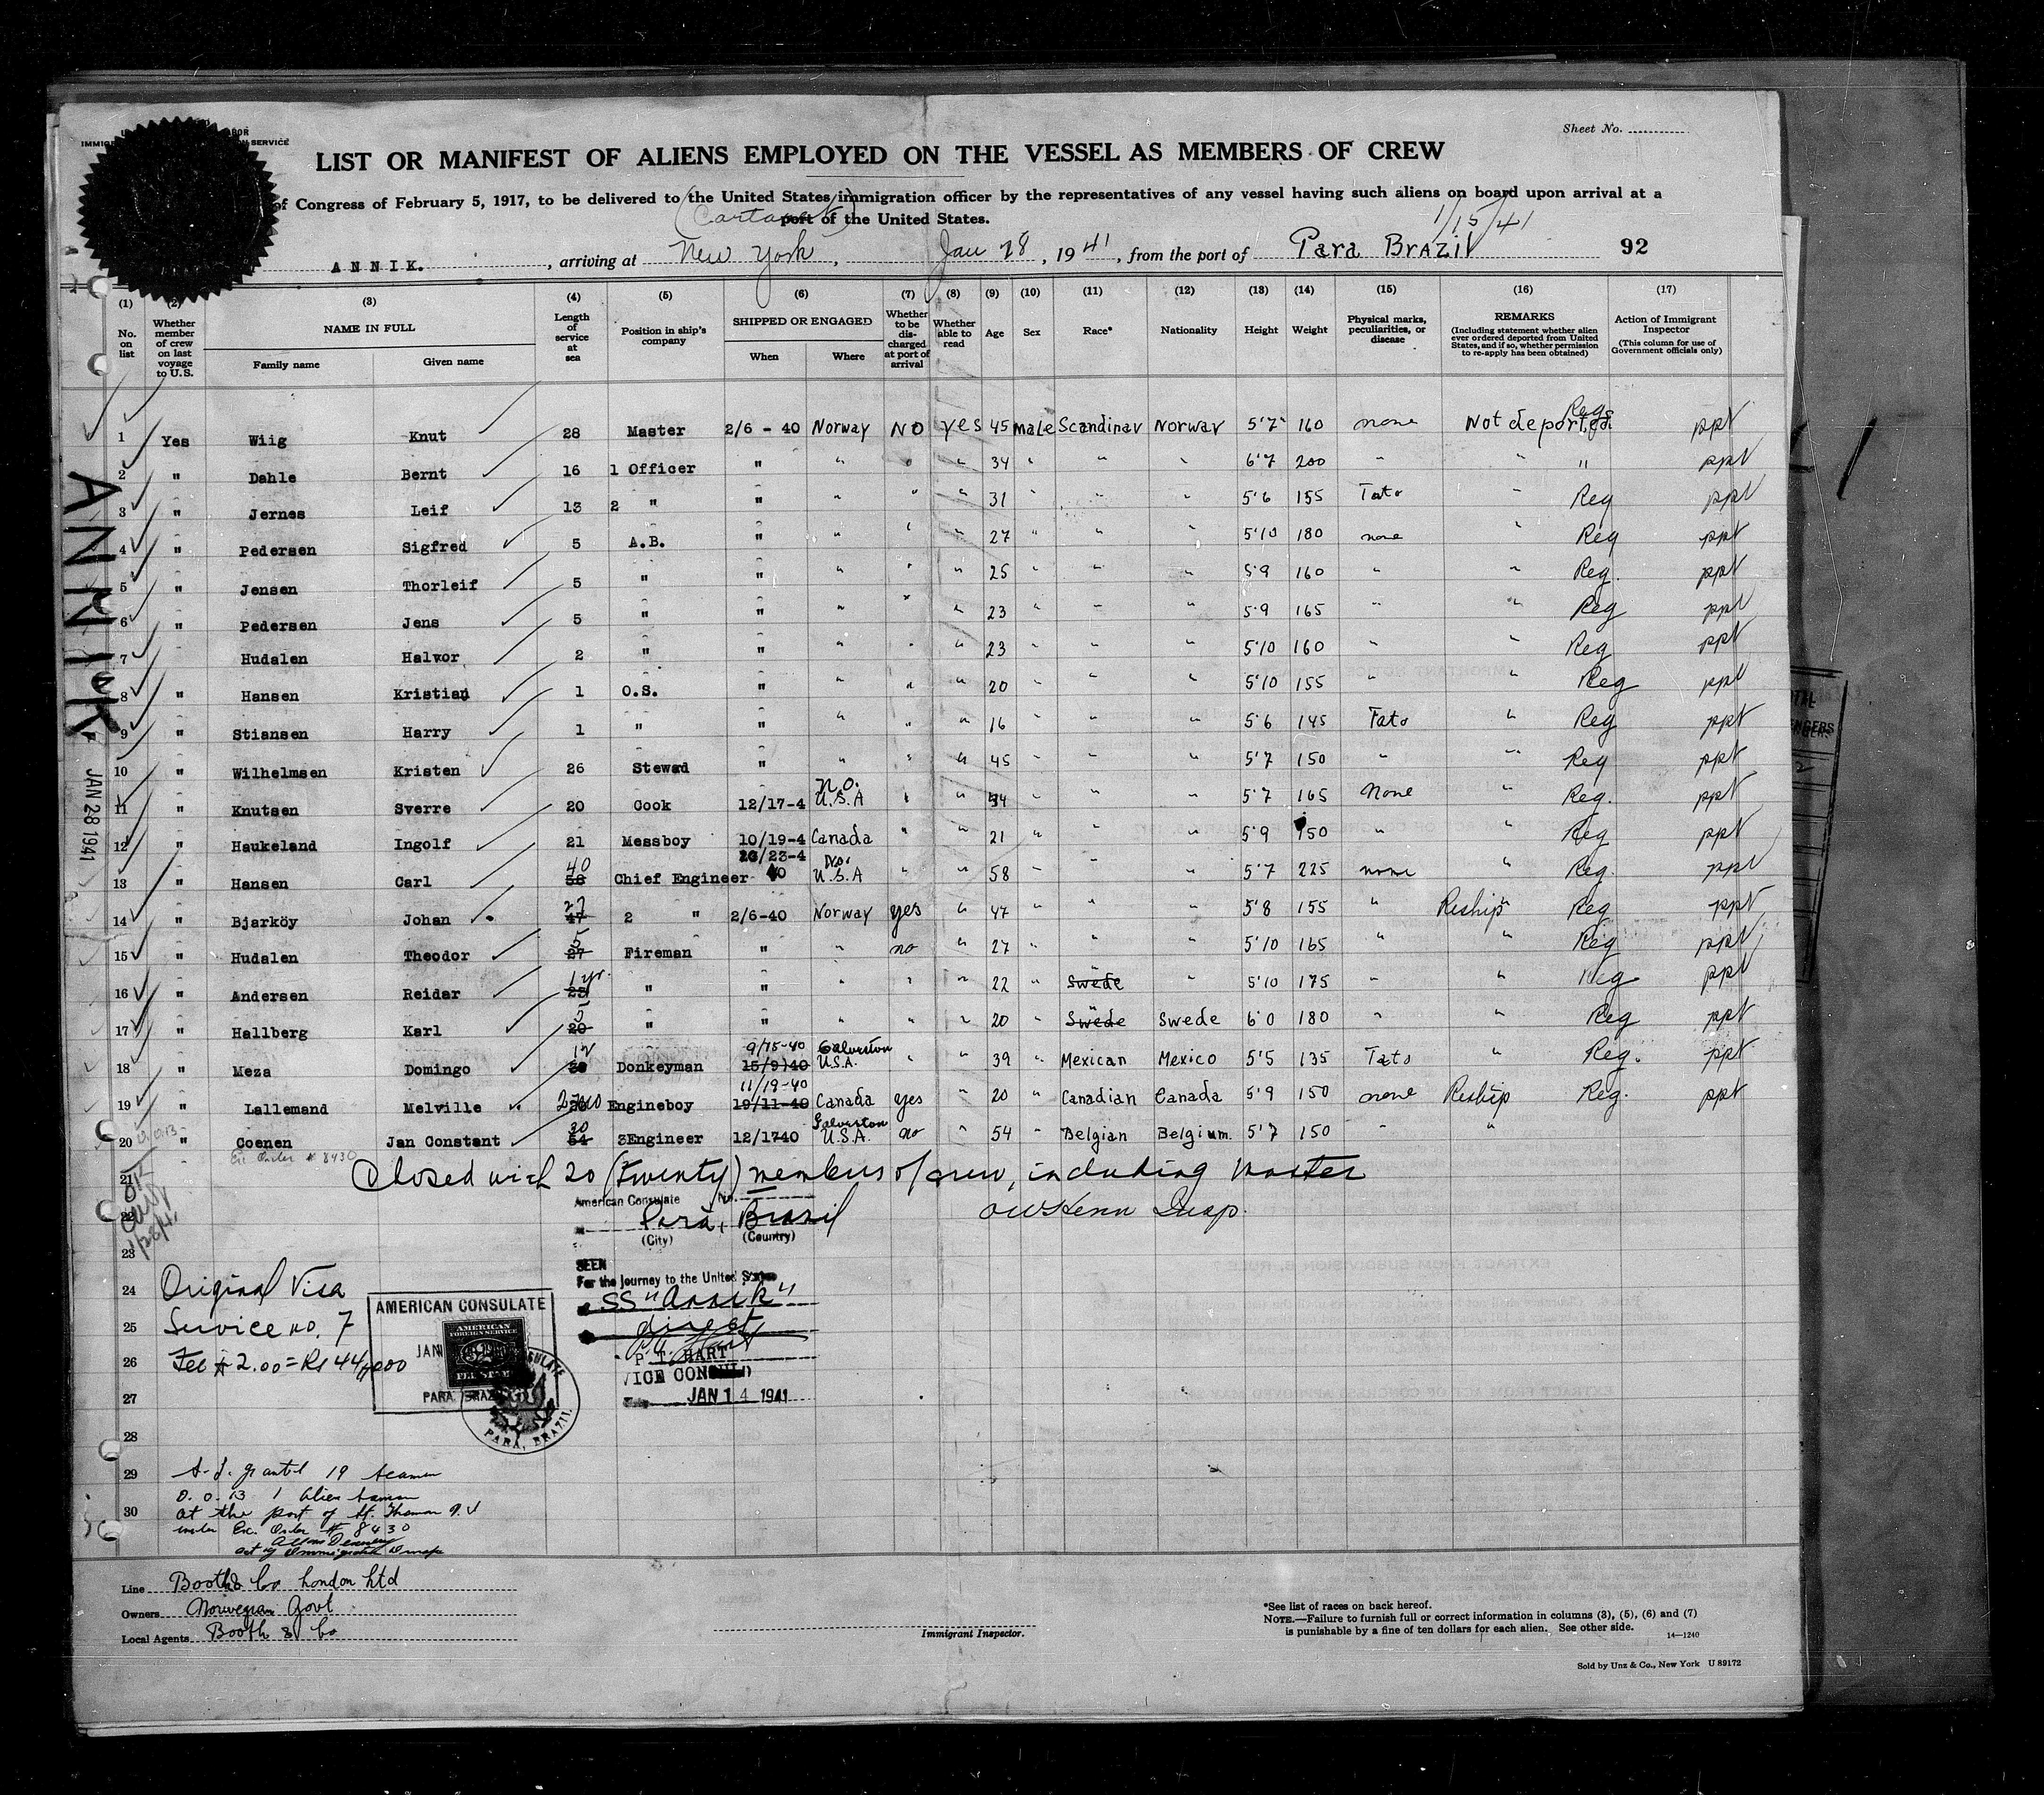 Sheet No.
LIST OR MANIFEST OF ALIENS EMPLOYED ON THE VESSEL AS MEMBERS OF CREW
of Congress of February 5, 1917, to be delivered to the United States immigration officer by the representatives of any vessel having such aliens on board upon arrival at a
port of the United States.
1/15/41
ANNIK. , arriving at New York , Jan 28 , 1941 , from the port of Para Brazil 92
(1) (2) (3) (4) (5) (6) (7) (8) (9) (10) (11) (12) (13) (14) (15) (16) (17)
No. on list
Whether member of crew on last voyage to U.S.
NAME IN FULL
Family name Given name
Length of service at sea
Position in ship's company
SHIPPED OR ENGAGED
When Where
Whether to be discharged at port of arrival
Whether able to read
Age
Sex
Race*
Nationality
Height
Weight
Physical marks, peculiarities, or disease
REMARKS
(Including statement whether alien ever ordered deported from United States, and if so, whether permission to re-apply has been obtained)
Action of Immigrant Inspector
(This column for use of Government officials only)
1 Yes Wiig Knut 28 Master 2/6 - 40 Norway No yes 45 male Scandinav Norway 5'7 160 none Not deported. Reg ppt
2 " Dahle Bernt 16 1 Officer " " " " 34 " " " 6'7 200 " " " ppt
3 " Jernes Leif 13 2 " " " " " 31 " " " 5'6 155 Tato " Reg ppt
4 " Pedersen Sigfred 5 A.B. " " " " 27 " " " 5'10 180 none " Reg ppt
5 " Jensen Thorleif 5 " " " " " 25 " " " 5'9 160 " " Reg. ppt
6 " Pedersen Jens 5 " " " " " 23 " " " 5'9 165 " " Reg ppt
7 " Hudalen Halvor 2 " " " " " 23 " " " 5'10 160 " " Reg ppt
8 " Hansen Kristian 1 O.S. " " " " 20 " " " 5'10 155 " " Reg ppt
9 " Stiansen Harry 1 " " " " " 16 " " " 5'6 145 Tato " Reg ppt
10 " Wilhelmsen Kristen 26 Stewad " " " " 45 " " 5'7 150 " " Reg ppt
11 " Knutsen Sverre 20 Cook 12/17-4 N.O. U.S.A " " 34 " " " 5'7 165 None " Reg. ppt
12 " Haukeland Ingolf 21 Messboy 10/19-4 Canada " " 21 " " " 5'9 150 " " Reg ppt
13 " Hansen Carl 40 58 Chief Engineer /23-4 40 N.O. U.S.A " " 58 " " " 5'7 225 none " Reg. ppt
14 " Bjarköy Johan 27 47 2 " 2/6-40 Norway yes " 47 " " " 5'8 155 " Reship " Reg ppt
15 " Hudalen Theodor 5 27 Fireman " " no " 27 " " " 5'10 165 " " Reg ppt
16 " Andersen Reidar 1 yr. 22 " " " " " 22 " Swede " 5'10 175 " " Reg ppt
17 " Hallberg Karl 5 20 " " " " " 20 " Swede Swede 6'0 180 " " Reg ppt
18 " Meza Domingo Donkeyman 9/15-40 15/9)40 Galveston U.S.A. " " 39 " Mexican Mexico 5'5 135 Tato " Reg. ppt
19 " Lallemand Melville 2 mo Engineboy 11/19-40 19/11-40 Canada yes " 20 " Canadian Canada 5'9 150 none Reship Reg. ppt
20 " Coenen Jan Constant 30 54 3Engineer 12/1740 Galveston U.S.A. no " 54 " Belgian Belgium. 5'7 150 " "
Ex. Order # 8430
21 Closed with 20 (twenty) members of crew, including master
American Consulate No.
22 Pará, Brazil Insp.
(City) (Country)
23
SEEN
For the journey to the United States
24 Original Visa
SS "Annik"
25 Service no. 7
direct
26 Fee $ 2.00 = Rs 44,000
AMERICAN CONSULATE
JAN
AMERICAN FOREIGN SERVICE
PARA, BRAZIL
PARA, BRAZIL.
P. T. HART
VICE CONSUL
JAN 14 1941
27
28
29 granted 19 seamen
D.O. 13 1 alien seaman
30 at the port of St. Thomas V.I
under Exc. Order # 8430
act g Immigration Insp
ANNIK
JAN 28 1941
Line Booth & Co London Ltd
Owners Norwegian Govt
Local Agents Booth & Co
Immigrant Inspector.
*See list of races on back hereof.
NOTE.—Failure to furnish full or correct information in columns (3), (5), (6) and (7)
is punishable by a fine of ten dollars for each alien. See other side.
14—1240
Sold by Unz & Co., New York U 89172